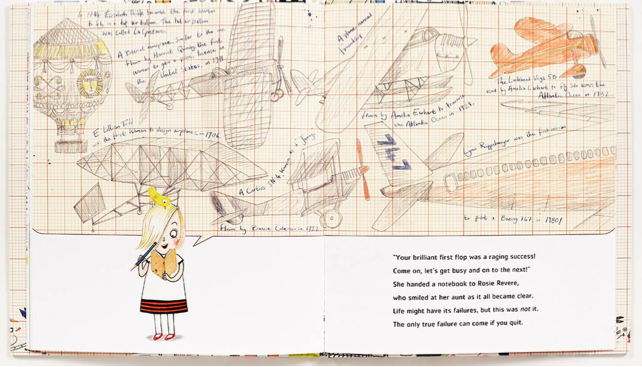 In 1784 Elisabeth Thible became the first woman
to fly in a hot air balloon. The hot air balloon
was called La Gustave.
A Blériot monoplane similar to the one
flown by Harriet Quimby the first
woman to gain a pilot's licence in
the United States, in 1911.
E Lillian Todd
the first woman to design airplanes in 1906.
A Curtiss JN-4 Known as a Jenny
Flown by Bessie Coleman in 1922
flown by Amelia Earhart to traverse
the Atlantic Ocean in 1928.
the Lockheed Vega 5B
used by Amelia Earhart to fly solo across the
Atlantic Ocean in 1932
747
Lynn Rippelmeyer was the first woman
to pilot a Boeing 747 in 1980!
"Your brilliant first flop was a raging success!
Come on, let's get busy and on to the next!"
She handed a notebook to Rosie Revere,
who smiled at her aunt as it all became clear.
Life might have its failures, but this was not it.
The only true failure can come if you quit.